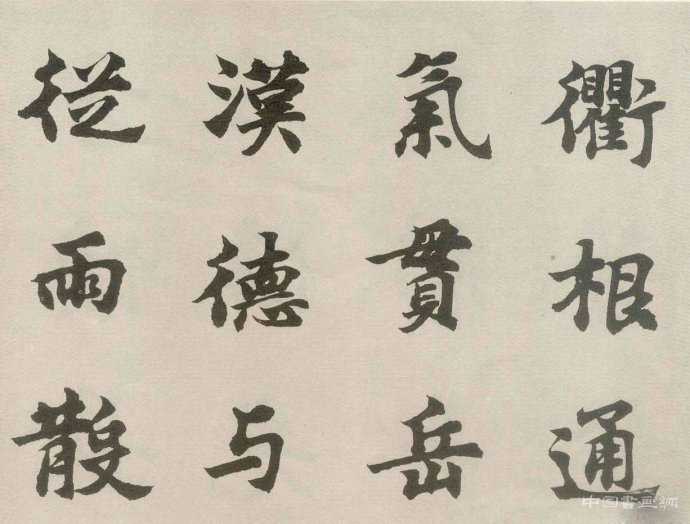 衢根通
氣貫岳
漢德与
從雨散
中国書画網